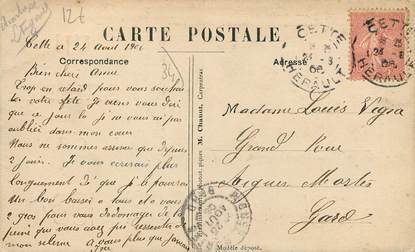 12€
CARTE POSTALE
Correspondance
Adresse
Cette le 24 Aout 1906
34
Bien chère Amie
Trop en retard pour vous souhaiter
votre fête je viens vous dire
que ce jour là je ne vous ai pas
oubliée dans mon cœur
Nous ne sommes arrivés que depuis
2 jours. Je vous écrirai plus
longuement dès que je pourrai
Un bon baiser à tous et à vous
2 gros pour vous dédommager de la
peine que vous avez
plus que Jane
Madame Louis Vigia
Grand Rue
Aigues Mortes
Gard
CETTE
HERAULT
CETTE
HERAULT
M. Chanut, Carpentras
Modèle déposé.